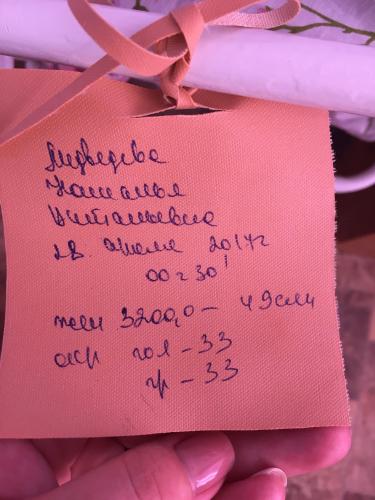 Медведева
Наталья
Витальевна
28. апреля 2017г
00 ч 30'
жен 3200,0 – 49см
окр гол – 33
гр – 33